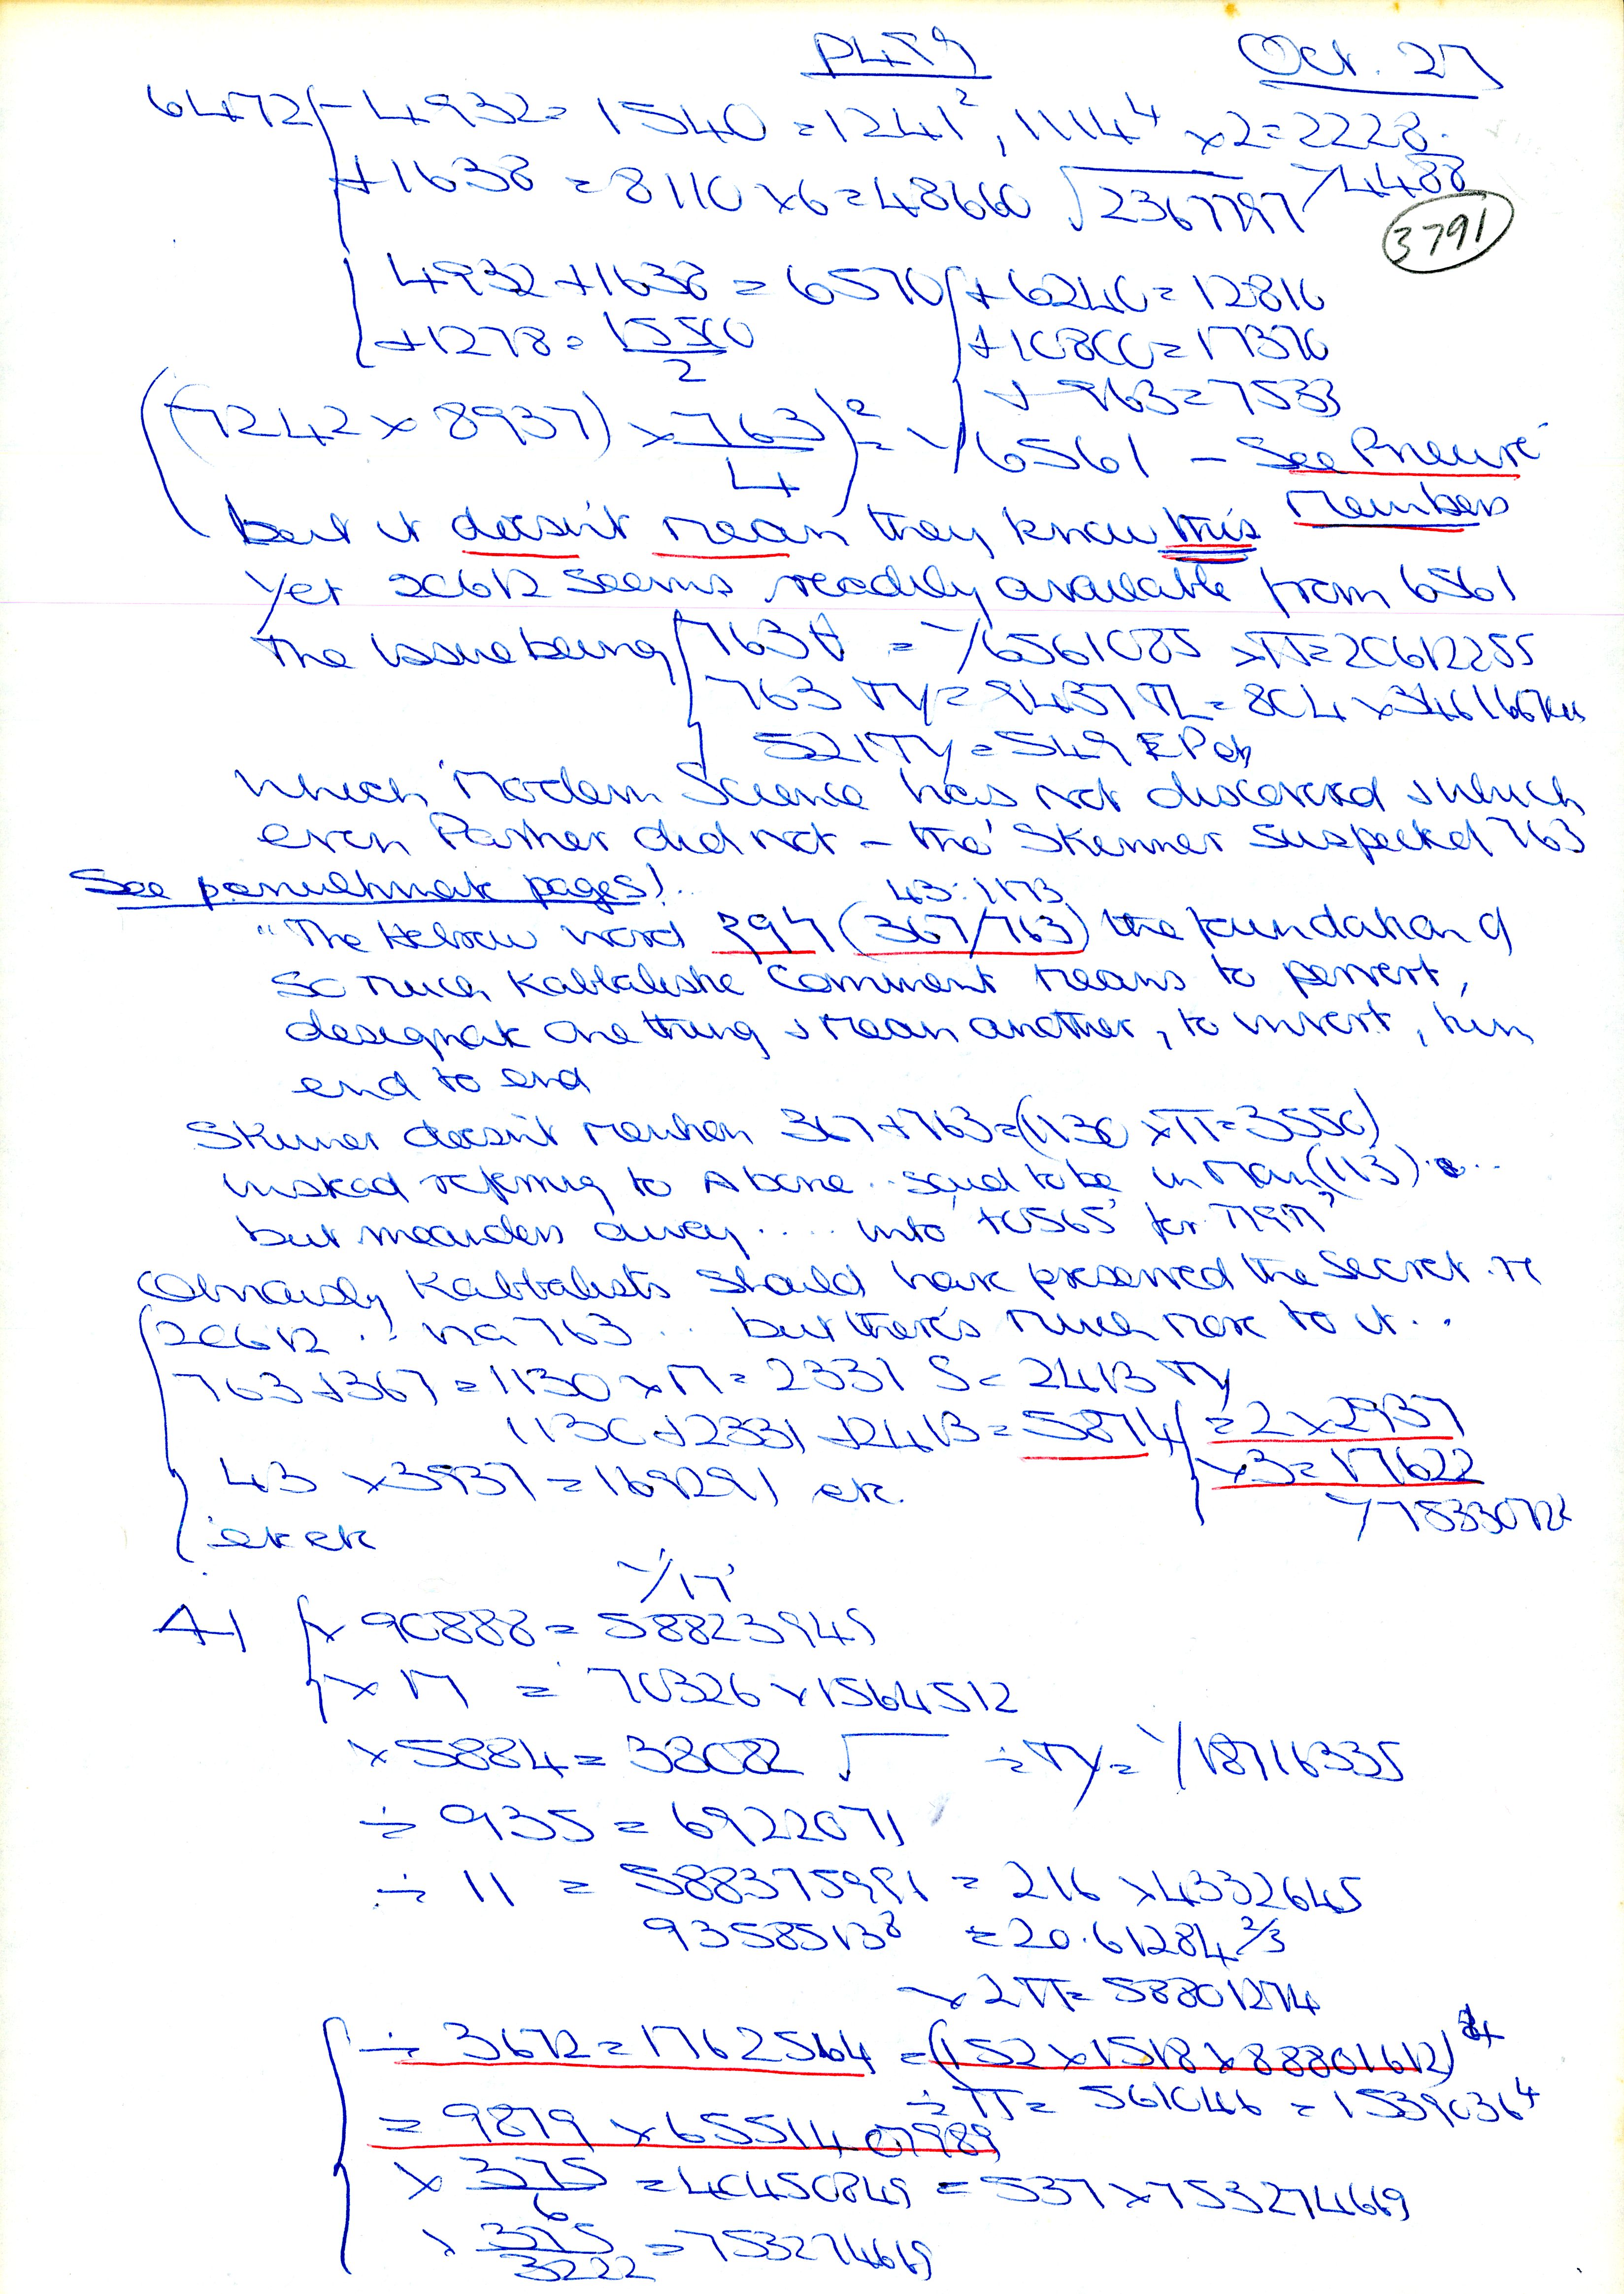 p459 Oct. 27
6472 - 4932 = 1540 = 1241², 1114⁴ × 2 = 2228.
+ 1638 = 8110 × 6 = 48660 √2367797 / 4488
3791
4932 + 1638 = 6570 + 6240 = 12810
+ 1278 = 1550/2 + 10800 = 17370
+ 963 = 7533
((7242 × 8937) × 763/4)² = 1/6561 - See Pneure
members
but it doesn't mean they knew this
Yet 20612 seems readily available from 6561
The issue being 763 = 1/6561085 × π = 20612255
763 TY = 9437 TL = 804 ×
521 TY = 549 EPeb
Which Modern Science has not discovered & which
even Parker did not - tho' Skinner suspected 763
See penultimate pages!
43. 1173
"The Hebrew word (367/763) the foundation of
so much Kabbalistic comment means to pervert,
designate one thing & mean another, to invert, turn
end to end
Skinner doesn't mention 367 + 763 = (1130 × π = 3550)
instead referring to A bone.. said to be in Man (113)
but meanders away.... into
Obviously Kabbalists should have preserved the secret re
20612 .. via 763 .. but there's much more to it..
763 + 367 = 1130 × = 2331 S = 2413 TY
1130 + 2331 + 2413 = 5874 = 2 × 2937
× 3 = 17622
43 × 3937 = 169291 etc.
etc etc
1/17
A-1 × 90888 = 58823949
× 17 = 70326 × 1564512
× 5884 = 38082 √ ÷ TY = 1/18716335
÷ 935 = 6922071
÷ 11 = 588375991 = 216 × 4332645
9358513⁸ = 20.61284 ²/₃
× 2π = 58801274
÷ 3672 = 1762564 = (152 × 1518 × 88801612)
÷ π = 561046 = 1539036⁴
= 9879 × 65514 07989
× 375/6 = 40450849 = 537 × 753274669
× 375/3222 = 753274669